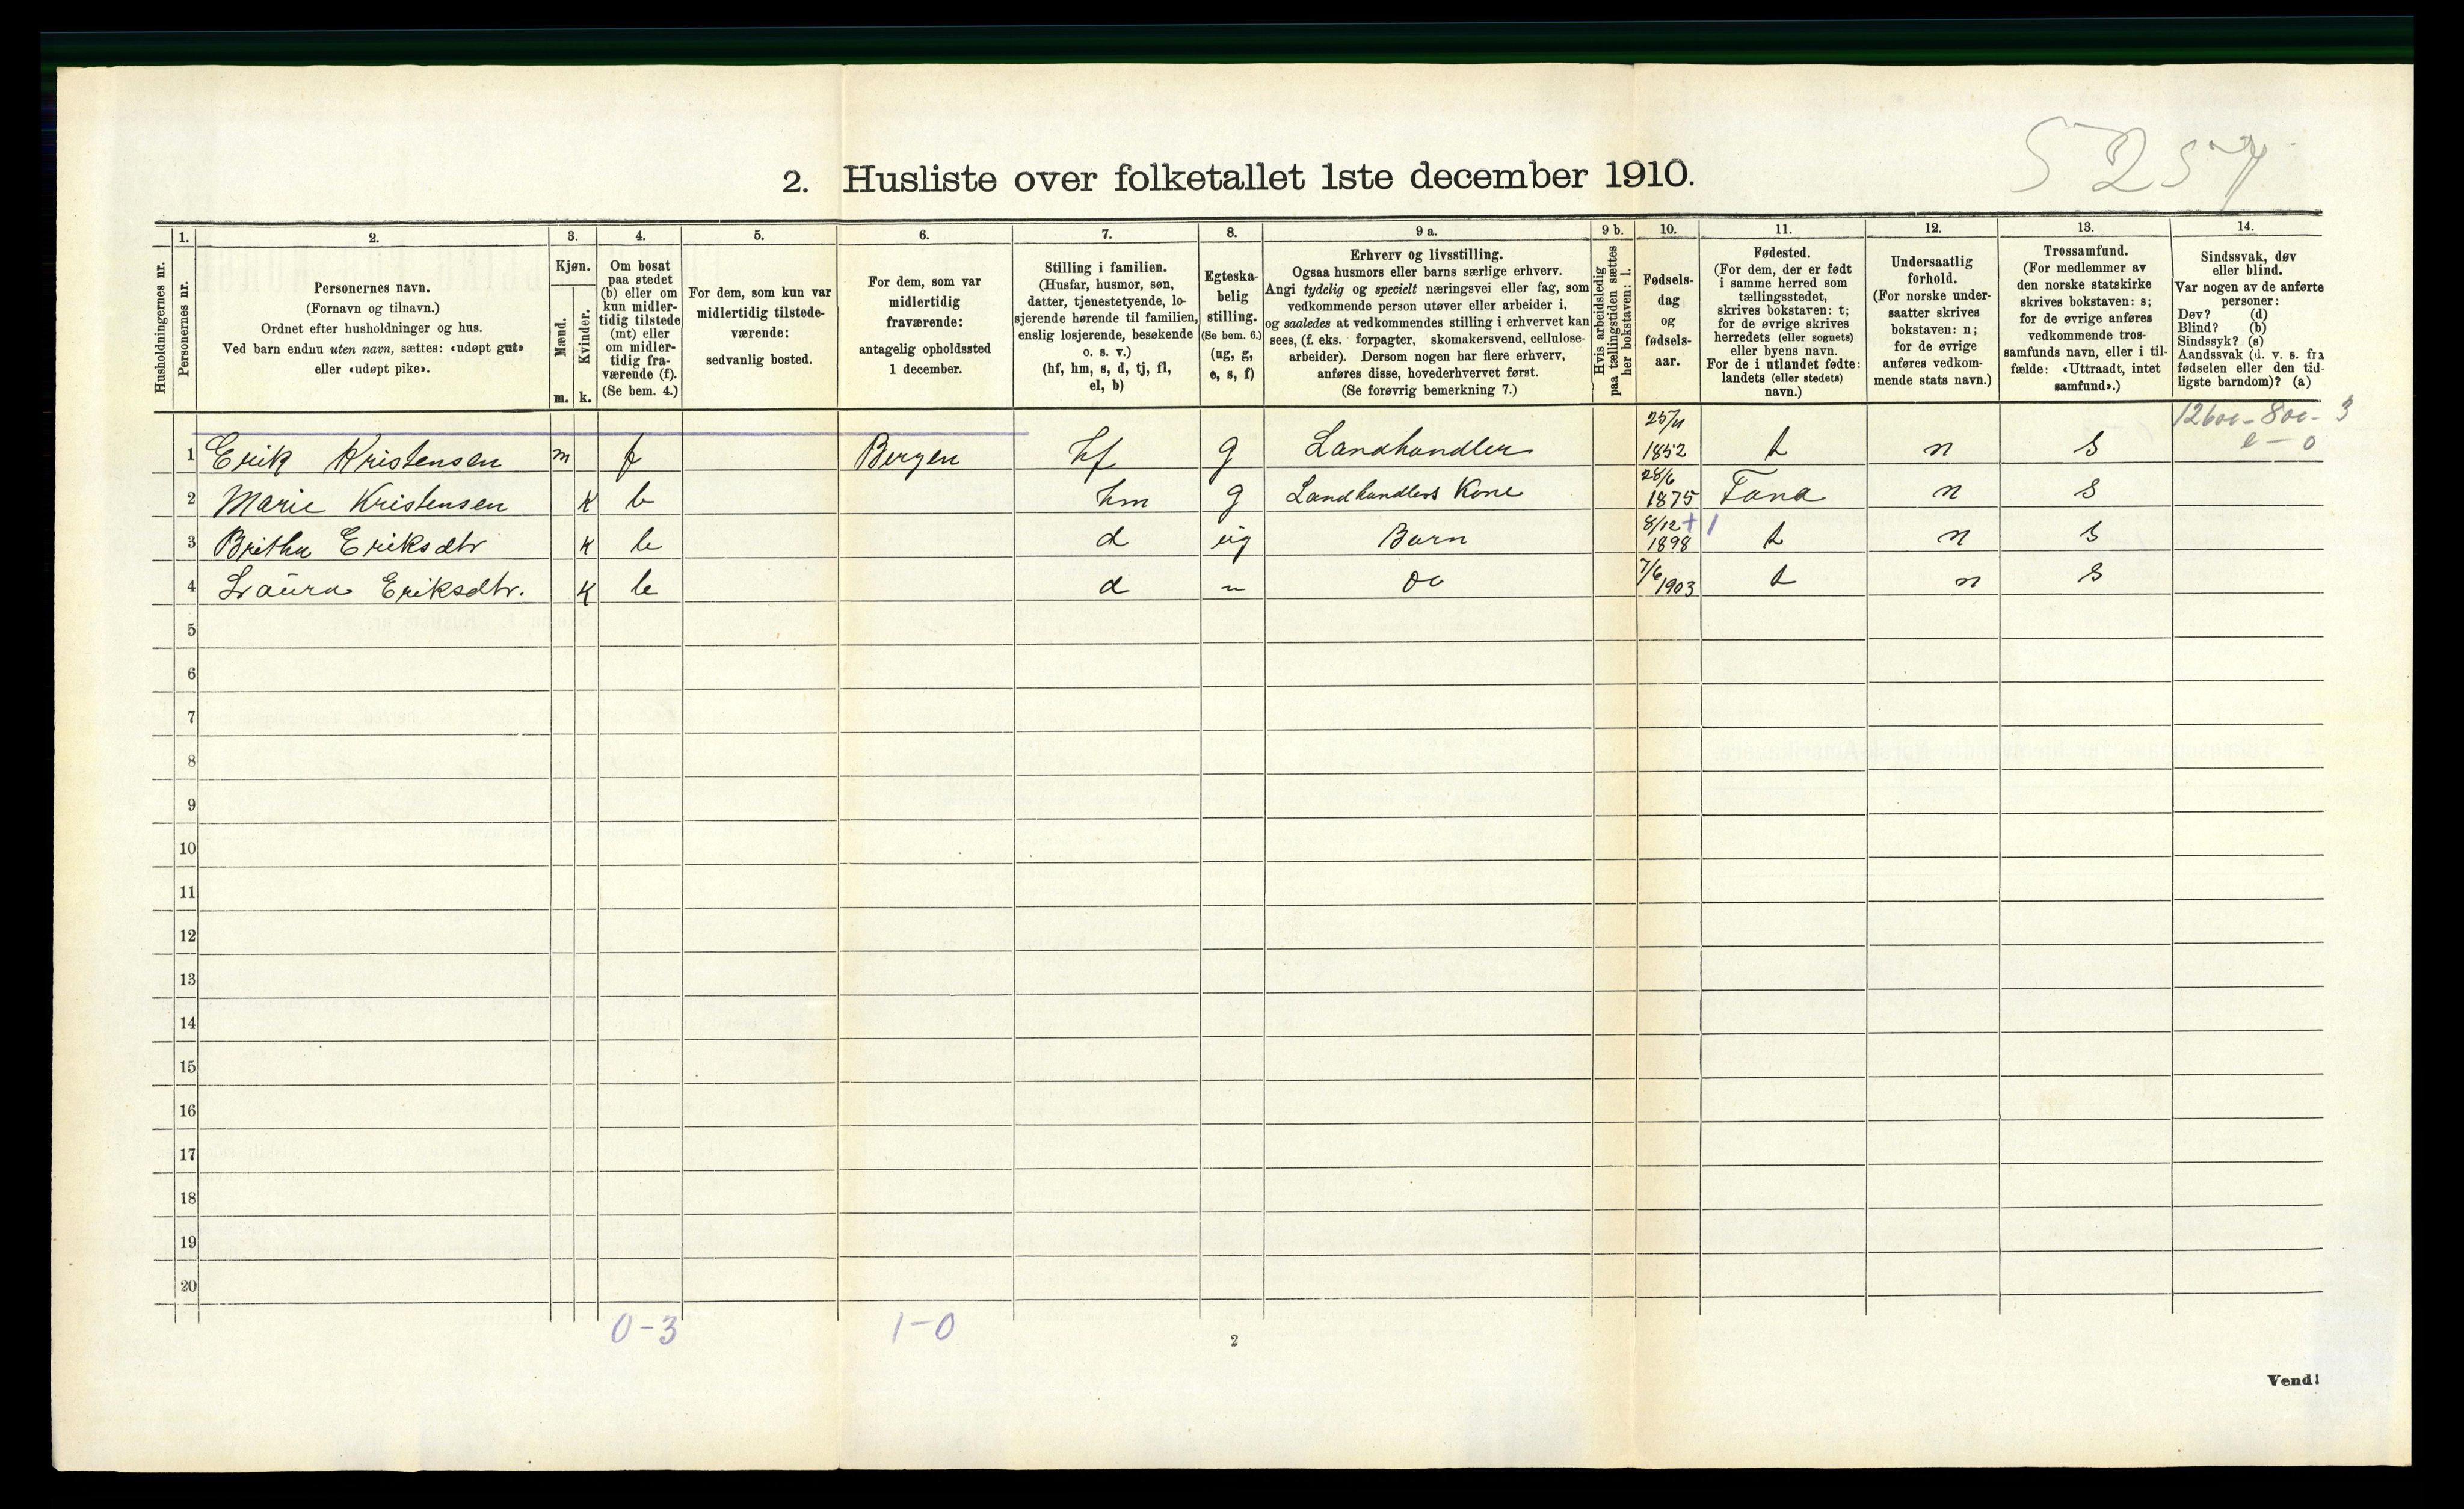 5257
2. Husliste over folketallet 1ste december 1910.
Husholdningernes nr.
1. Personernes nr.
2.
Personernes navn.
(Fornavn og tilnavn.)
Ordnet efter husholdninger og hus.
Ved barn endnu uten navn, sættes: «udøpt gut»
eller «udøpt pike».
3.
Kjøn.
Mænd. Kvinder.
m. k.
4.
Om bosat
paa stedet
(b) eller om
kun midler-
tidig tilstede
(mt) eller
om midler-
tidig fra-
værende (f).
(Se bem. 4.)
5.
For dem, som kun var
midlertidig tilstede-
værende:
sedvanlig bosted.
6.
For dem, som var
midlertidig
fraværende:
antagelig opholdssted
1 december.
7.
Stilling i familien.
(Husfar, husmor, søn,
datter, tjenestetyende, lo-
sjerende hørende til familien,
enslig losjerende, besøkende
o. s. v.)
(hf, hm, s, d, tj, fl,
el, b)
8.
Egteska-
belig
stilling.
(Se bem. 6.)
(ug, g,
e, s, f)
9 a.
Erhverv og livsstilling.
Ogsaa husmors eller barns særlige erhverv.
Angi tydelig og specielt næringsvei eller fag, som
vedkommende person utøver eller arbeider i,
og saaledes at vedkommendes stilling i erhvervet kan
sees, (f. eks. forpagter, skomakersvend, cellulose-
arbeider). Dersom nogen har flere erhverv,
anføres disse, hovederhvervet først.
(Se forøvrig bemerkning 7.)
9 b.
Hvis arbeidsledig
paa tællingstiden sættes
her bokstaven: l.
10.
Fødsels-
dag
og
fødsels-
aar.
11.
Fødested.
(For dem, der er født
i samme herred som
tællingsstedet,
skrives bokstaven: t;
for de øvrige skrives
herredets (eller sognets)
eller byens navn.
For de i utlandet fødte:
landets (eller stedets)
navn.)
12.
Undersaatlig
forhold.
(For norske under-
saatter skrives
bokstaven: n;
for de øvrige
anføres vedkom-
mende stats navn.)
13.
Trossamfund.
(For medlemmer av
den norske statskirke
skrives bokstaven: s;
for de øvrige anføres
vedkommende tros-
samfunds navn, eller i til-
fælde: «Uttraadt, intet
samfund».)
14.
Sindssvak, døv
eller blind.
Var nogen av de anførte
personer:
Døv? (d)
Blind? (b)
Sindssyk? (s)
Aandssvak (d. v. s. fra
fødselen eller den tid-
ligste barndom)? (a)
1 Erik Kristensen m f Bergen hf g Landhandler 25/11 1852 t n s
2 Marie Kristensen k b hm g Landhandlers Kone 28/6 1875 Fana n s
3 Britha Eriksdtr k b d ug Barn 8/12 1898 t n s
4 Laura Eriksdtr. k b d " do 7/6 1903 t n s
5
6
7
8
9
10
11
12
13
14
15
16
17
18
19
20
0-3 1-0
2
Vend!